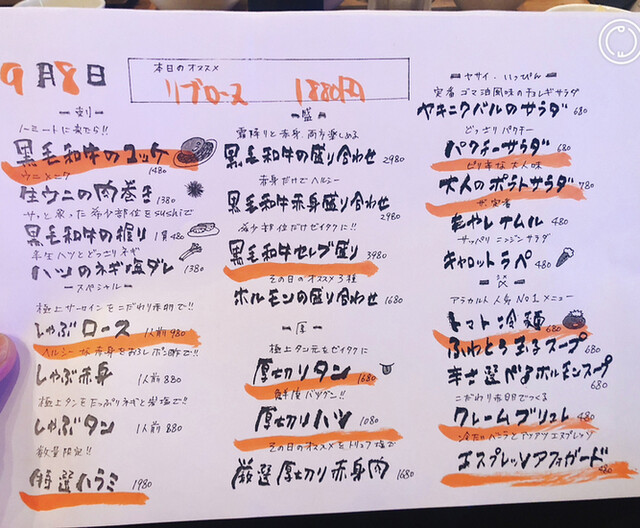 9月8日
本日のオススメ
リブロース 1880円
ノーミートに来たら!!
黒毛和牛のユッケ 1480
ウニ×ニク
生ウニの肉巻き 1380
サッと炙った希少部位をsushiで
黒毛和牛の握り 1貫 480
半生ハツとどっさりネギ
ハツのネギ塩ダレ 1380
スペシャル
極上サーロインをこだわり赤卵で!!
しゃぶロース 1人前 980
ヘルシーな赤身をおろしポン酢で!!
しゃぶ赤身 1人前 880
極上タンをたっぷりネギと薬塩で!!
しゃぶタン 1人前 880
数量限定!!
特選ハラミ 1980
盛
霜降りと赤身 両方楽しめる
黒毛和牛の盛り合わせ 2980
赤身だけでヘルシー
黒毛和牛赤身盛り合わせ 2980
希少部位だけゼイタクに!!
黒毛和牛セレブ盛り 3980
その日のオススメ3種
ホルモンの盛り合わせ 1680
厚
極上タン元をゼイタクに
厚切りタン 1680
鮮度バツグン!!
厚切りハツ 1080
その日のオススメをトリュフ塩で
厳選厚切り赤身肉 1680
ヤサイ・いっぴん
定番ゴマ油風味のチョレギサラダ
ヤキニクバルのサラダ 680
どっさりパクチー
パクチーサラダ 680
ピリ辛な大人味
大人のポテトサラダ 780
ザ・定番
もやしナムル 480
サッパリニンジンサラダ
キャロットラペ 480
〆
アラカルト人気No1メニュー
トマト冷麺 680
ふわとろ玉子スープ 680
辛さ選べるホルモンスープ 680
こだわり赤卵でつくる
クレームブリュレ 480
冷たいバニラとアツアツエスプレッソ
エスプレッソアフォガード 480